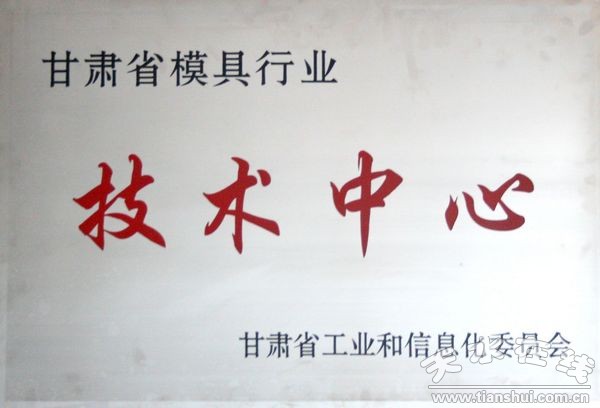 甘肃省模具行业
技术中心
甘肃省工业和信息化委员会
天水在线
www.tianshui.com.cn